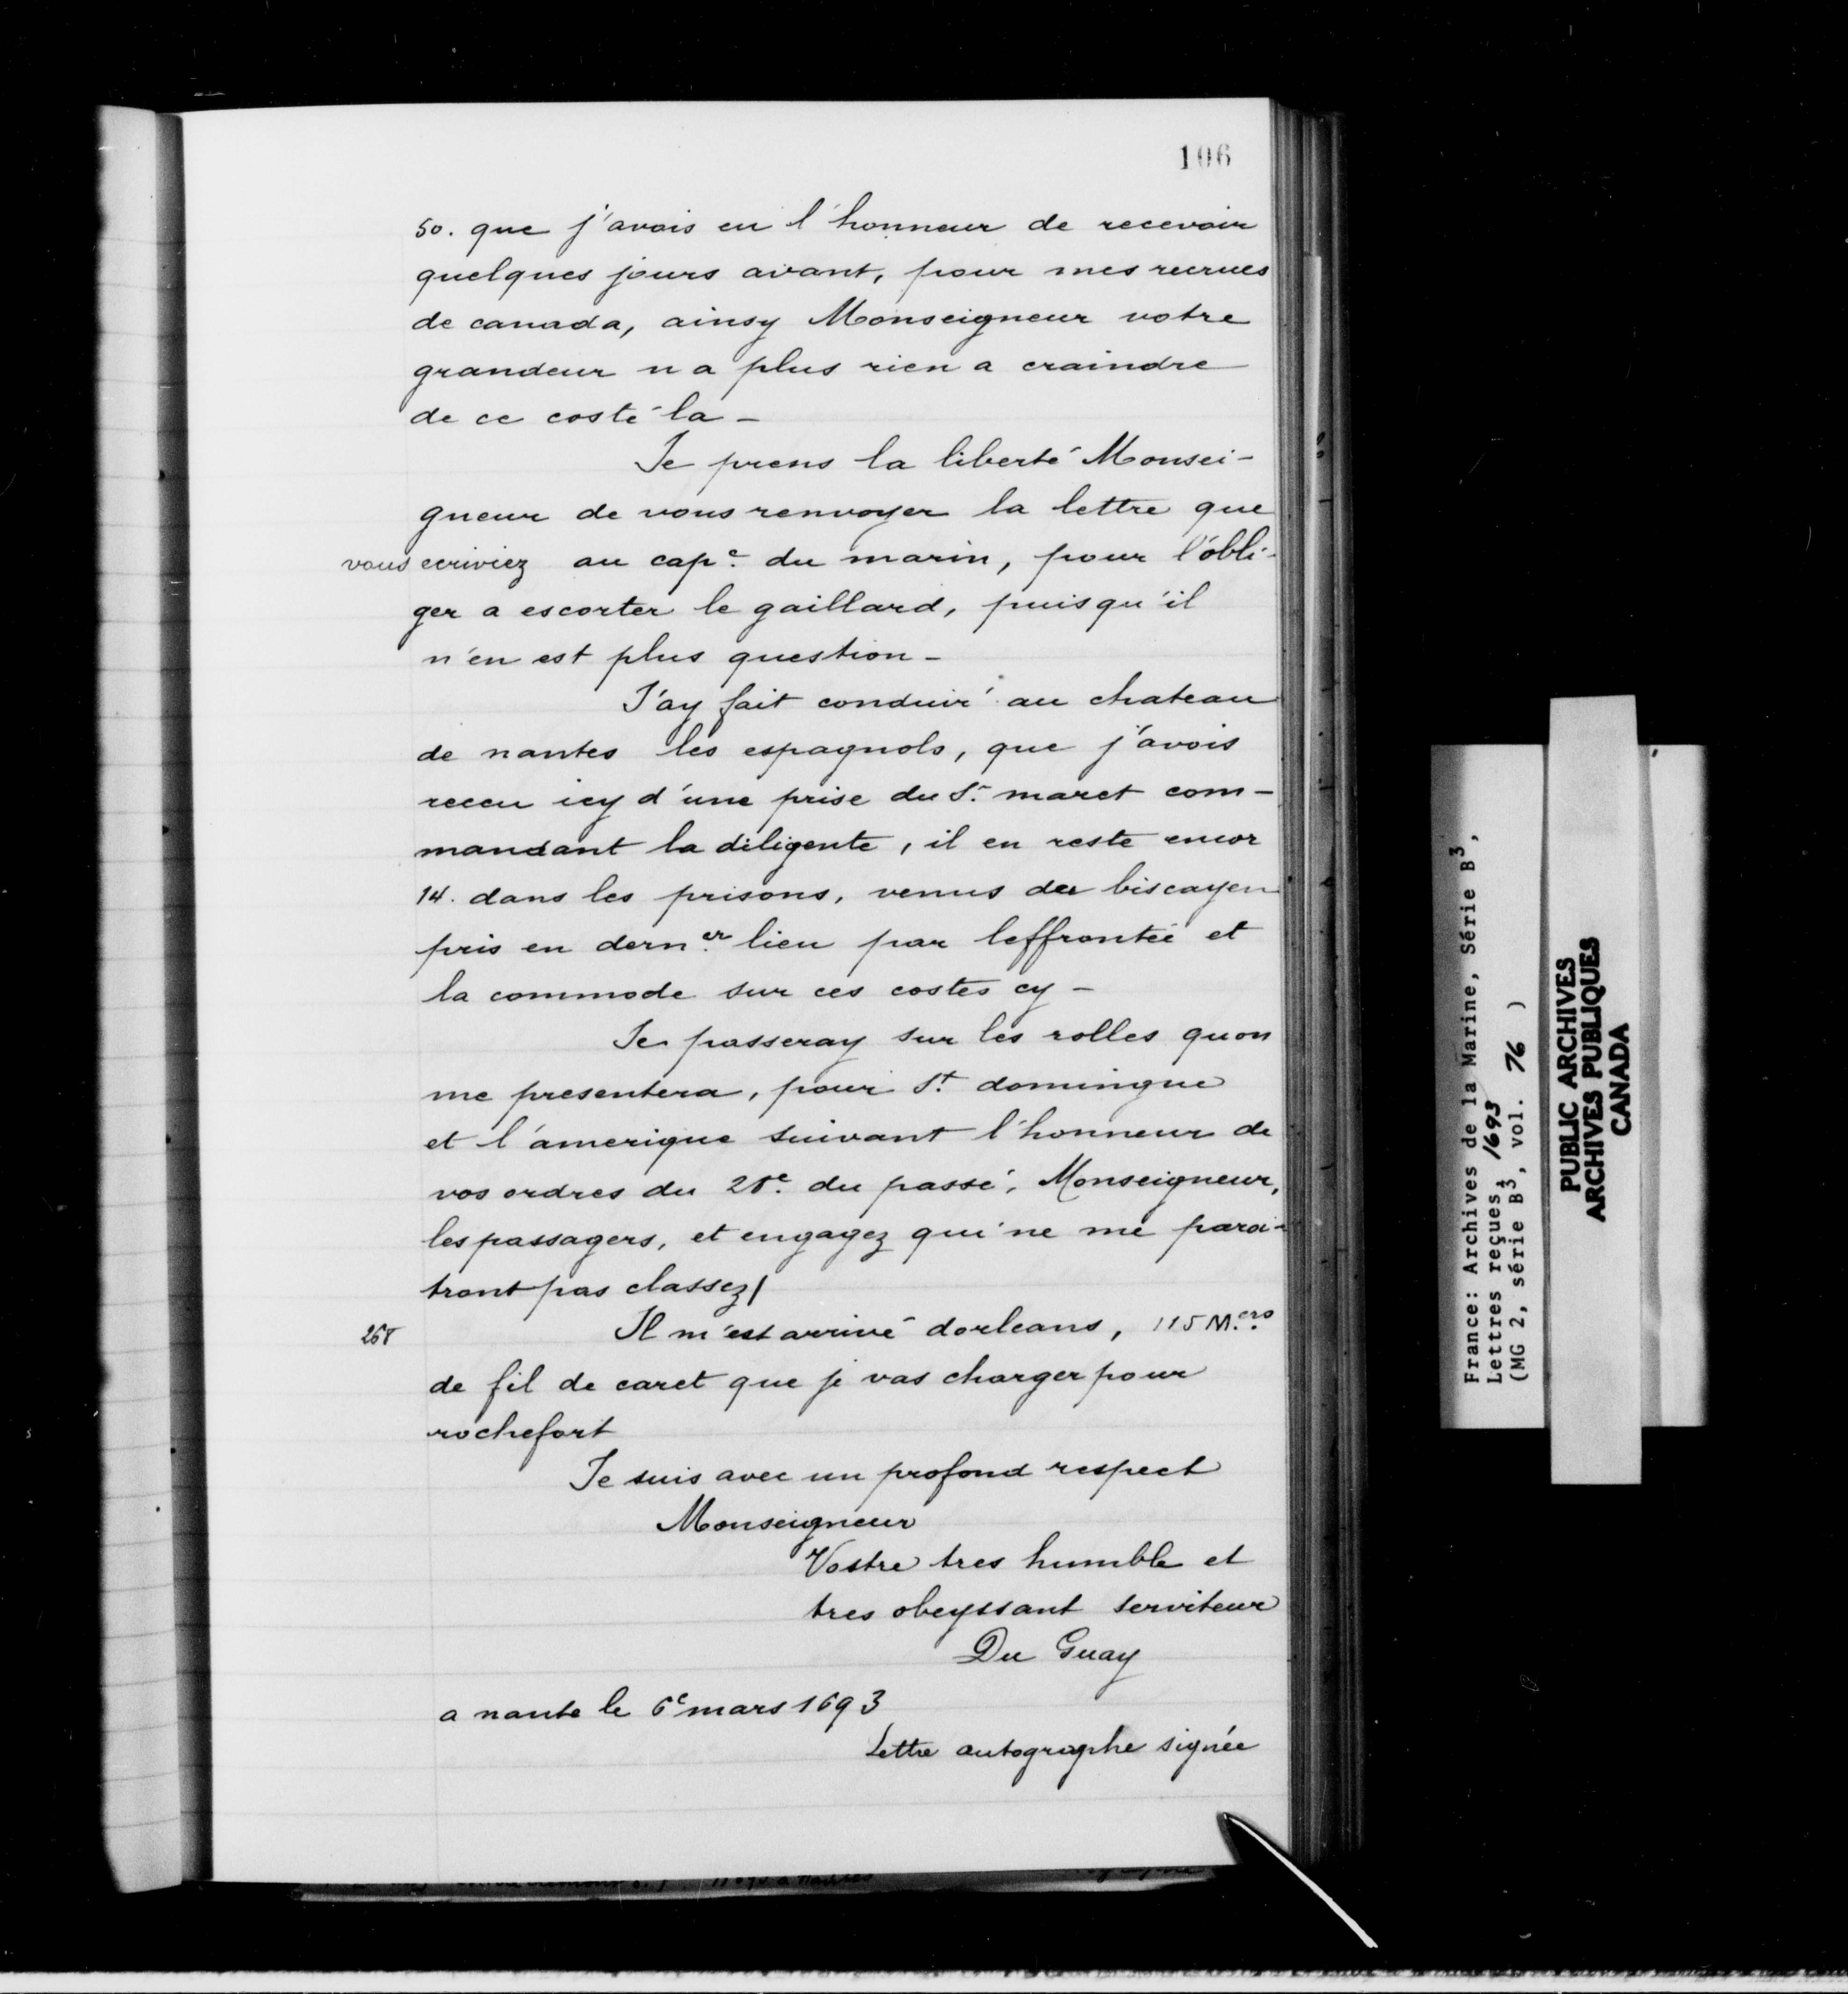 106
50. que j'avois eu l'honneur de recevoir
quelques jours avant, pour mes recrues
de canada, ainsy Monseigneur votre
grandeur n a plus rien a craindre
de ce costé la -
Je prens la liberté Monsei-
gneur de vous renvoyer la lettre que
vous ecriviez au cap.e du marin, pour l'obli-
ger a escorter le gaillard, puisqu'il
n'en est plus question -
J'ay fait conduire au chateau
de nantes les espagnols, que j'avois
receu icy d'une prise du S.r maret com-
mandant la diligente, il en reste encor
14. dans les prisons, venus du biscayen
pris en dern.er lieu par leffrontée et
la commode sur ces costes cy -
Je passeray sur les rolles quon
me presentera, pour S.t domingue
et l'amerique suivant l'honneur de
vos ordres du 28.e du passé, Monseigneur,
les passagers, et engagez qui ne me parai-
tront pas classez/
268
Il m'est arrivé dorleans, 115 M.ers
de fil de caret que je vas charger pour
rochefort
Je suis avec un profond respect
Monseigneur
Vostre tres humble et
tres obeyssant serviteur
Du Guay
a nante le 6e mars 1693
Lettre autographe signée
France: Archives de la Marine, Série B3,
Lettres reçues, 1693
(MG 2, série B3, vol. 76 )
PUBLIC ARCHIVES
ARCHIVES PUBLIQUES
CANADA